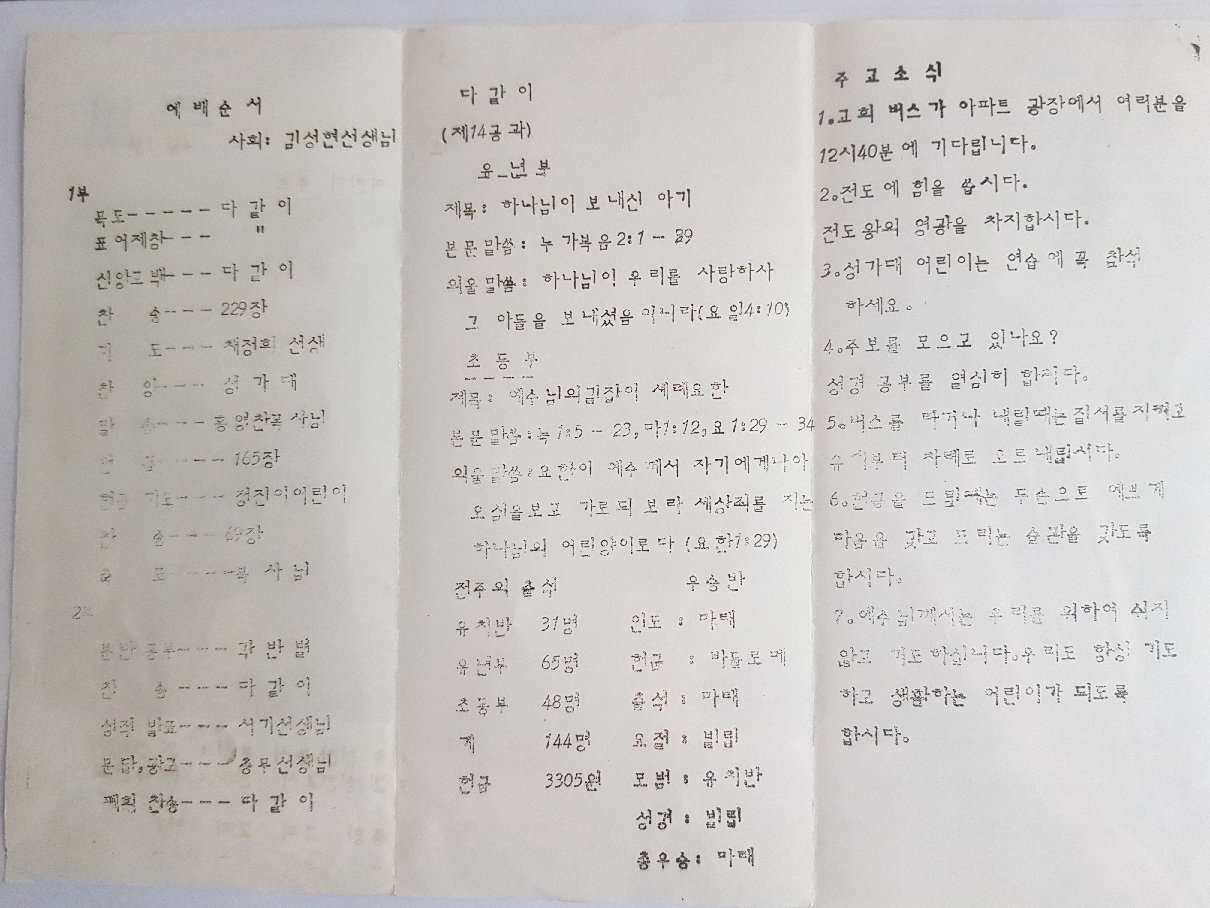 예 배 순 서
사회: 김성현선생님
1부
묵도----- 다 같 이
표어제창--- "
신앙고백--- 다 같 이
찬 송--- 229장
기 도--- 채정희 선생
찬 양--- 성 가 대
말 씀--- 홍영찬목 사님
헌 금---- 165장
헌금 기도---- 정진이어린이
찬 송---- 69장
축 도-----목 사님
2부
분반 공부---- 각 반 별
찬 송--- 다 같 이
성적 발표--- 서기선생님
문답,광고--- 총무선생님
폐회 찬송--- 다 같 이
다 같 이
(제14공 과)
유 년 부
제목: 하나님이 보내신 아기
본문 말씀: 누 가복음 2:1 - 39
외울 말씀: 하나님이 우리를 사랑하사
그 아들을 보내셨음 이니라(요 일4:10)
초 등 부
제목: 예수님의길잡이 세례요한
본문 말씀:눅 1:5 - 23,마1:12,요 1:29 - 34
외울 말씀:요한이 예수 께서 자기에게나아
오심을보고 가로되 보라 세상죄를 지는
하나님의 어린양이로다 (요한1:29)
전주의 출석 우승반
유치반 31명 인도 : 마태
유년부 65명 헌금 : 바돌로메
초등부 48명 출석 : 마태
계 144명 요절 : 빌립
헌금 3305원 모범 : 유치반
성경 : 빌립
총우승: 마태
주 고 소 식
1.교회 버스가 아파트 광장에서 여러분을
12시40분 에 기다립니다.
2.전도 에 힘을 씁시다.
전도왕의 영광을 차지합시다.
3.성가대 어린이는 연습에 꼭 참석
하세요.
4.주보를 모으고 있나요?
성경 공부를 열심히 합시다.
5.버스를 타거나 내릴때는질서를지키고
유치부터 차례로 오르내립시다.
6.헌금을 드릴때는 두손으로 예쁘게
마음을 갖고 드리는 습관을 갖도록
합시다.
7.예수님께서는 우리를 위하여 쉬지
않고 기도하십니다.우리도 항상 기도
하고 생활하는 어린이가 되도록
합시다.